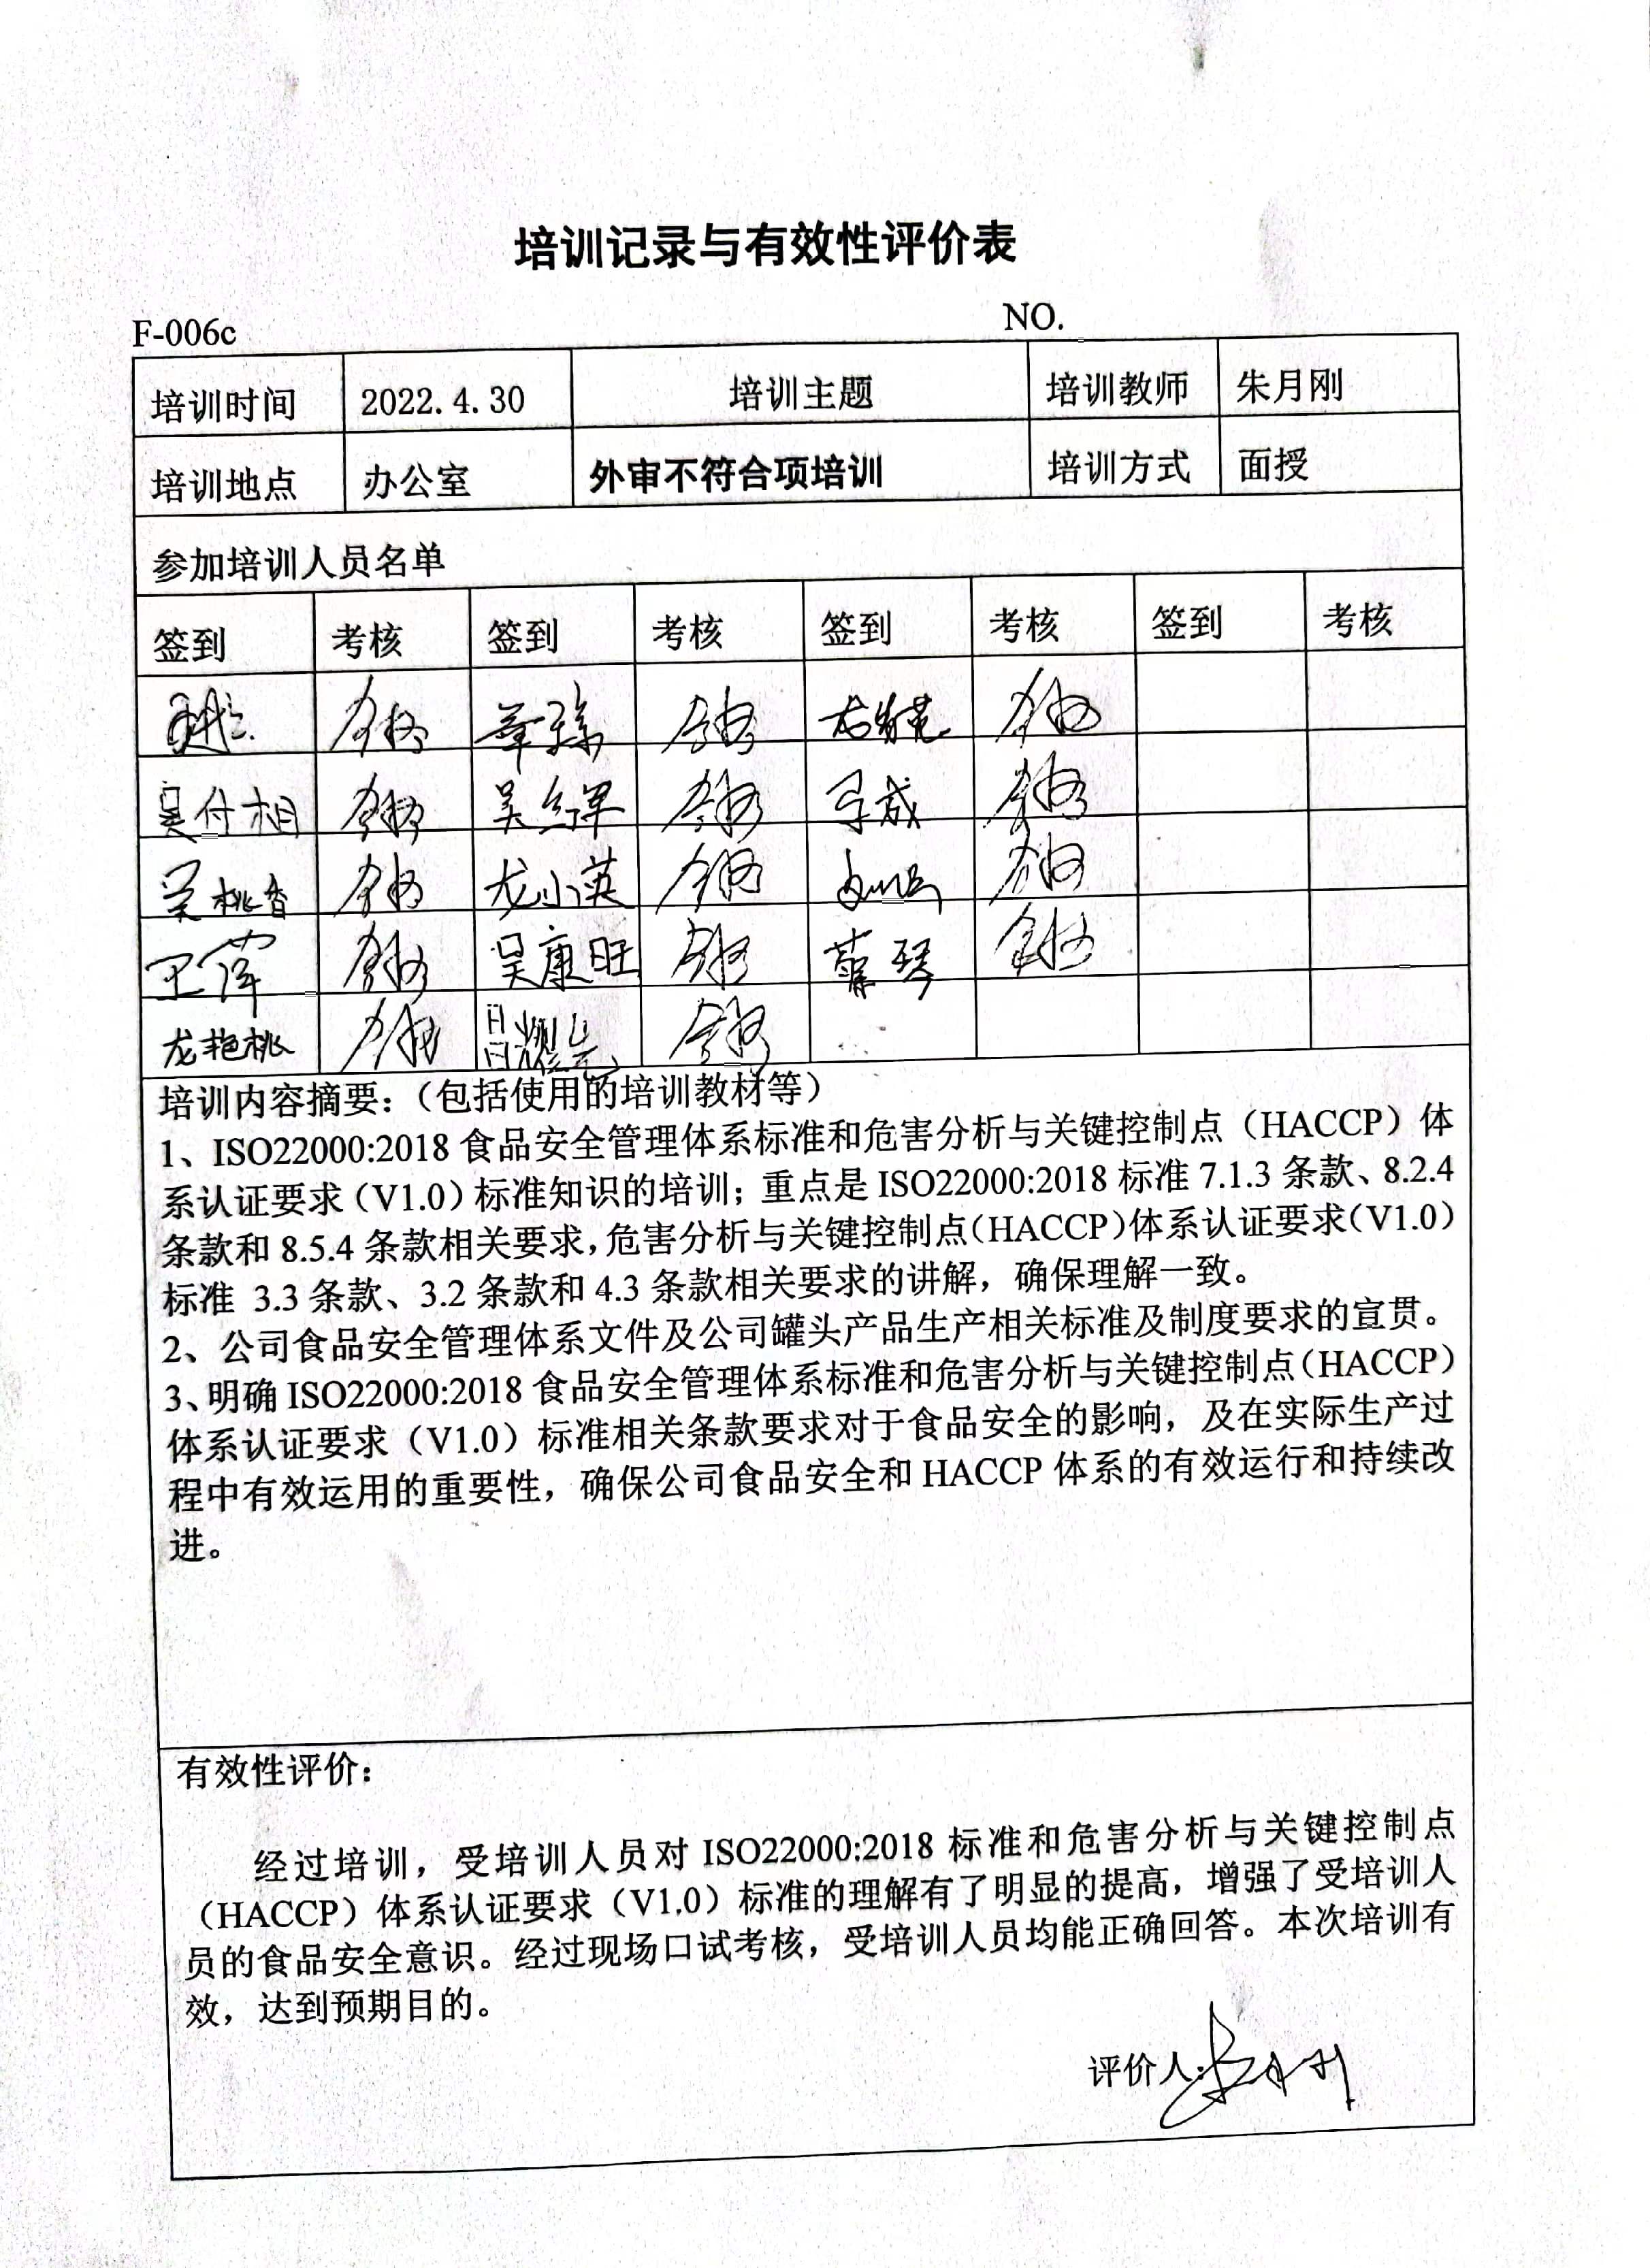 培训记录与有效性评价表
F-006c NO.
培训时间 2022.4.30 培训主题 培训教师 朱月刚
培训地点 办公室 外审不符合项培训 培训方式 面授
参加培训人员名单
签到 考核 签到 考核 签到 考核 签到 考核
合格 合格 合格
吴付相 合格 合格 合格
吴桃香 合格 龙小英 合格 合格
王萍 合格 吴康旺 合格 琴 合格
龙艳桃 合格 合格
培训内容摘要：（包括使用的培训教材等）
1、ISO22000:2018 食品安全管理体系标准和危害分析与关键控制点（HACCP）体
系认证要求（V1.0）标准知识的培训；重点是 ISO22000:2018 标准 7.1.3 条款、8.2.4
条款和 8.5.4 条款相关要求，危害分析与关键控制点（HACCP）体系认证要求（V1.0）
标准 3.3 条款、3.2 条款和 4.3 条款相关要求的讲解，确保理解一致。
2、公司食品安全管理体系文件及公司罐头产品生产相关标准及制度要求的宣贯。
3、明确 ISO22000:2018 食品安全管理体系标准和危害分析与关键控制点（HACCP）
体系认证要求（V1.0）标准相关条款要求对于食品安全的影响，及在实际生产过
程中有效运用的重要性，确保公司食品安全和 HACCP 体系的有效运行和持续改
进。
有效性评价：
经过培训，受培训人员对 ISO22000:2018 标准和危害分析与关键控制点
（HACCP）体系认证要求（V1.0）标准的理解有了明显的提高，增强了受培训人
员的食品安全意识。经过现场口试考核，受培训人员均能正确回答。本次培训有
效，达到预期目的。
评价人：朱月刚